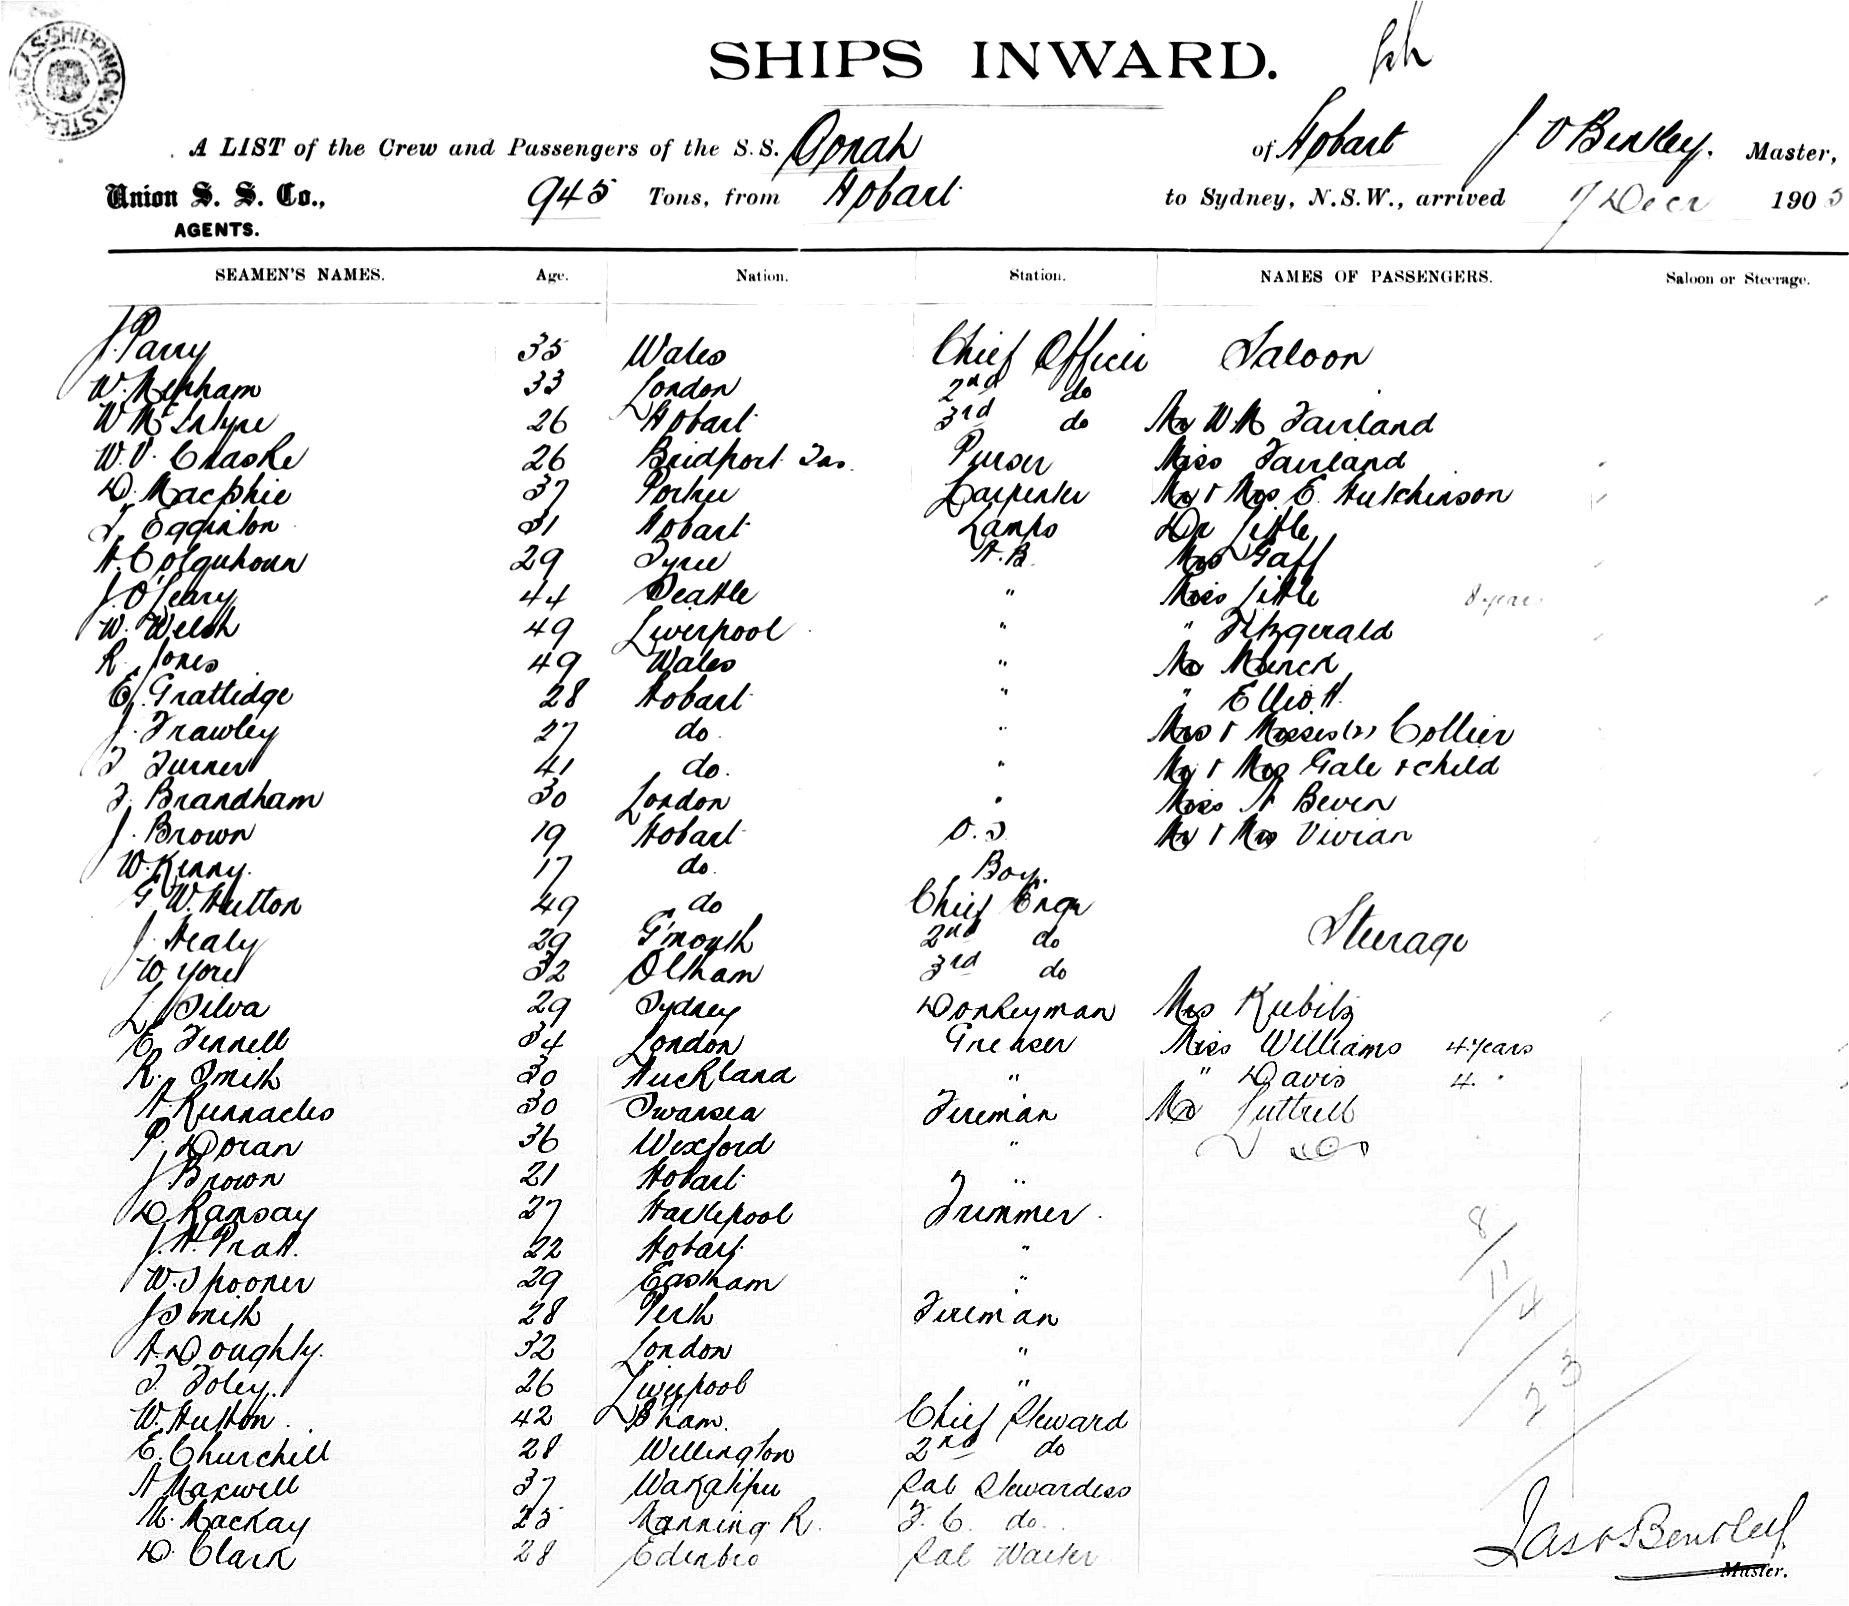 SHIPS INWARD.
A LIST of the Crew and Passengers of the S.S. Oonah of Hobart J O Bentley. Master,
Union S. S. Co., 945 Tons, from Hobart to Sydney, N.S.W., arrived 7 Decr 1905
AGENTS.
SEAMEN'S NAMES. Age. Nation. Station. NAMES OF PASSENGERS. Saloon or Steerage.
J. Parry 35 Wales Chief Officer Saloon
W. Menham 33 London 2nd do
W McIntyre 26 Hobart 3rd do Mr W M Fairland
W. V. Chaske 26 Bridport Tas. Purser Miss Fairland
D. Macphie 37 Carpenter Mr & Mrs E. Hutchinson
T. Egginton 31 Hobart Lamps Dr Little
A. Colquhoun 29 Tyree A.B. Mrs Gaff
J. O'Leary 44 Seattle " Miss Little 8 years
W. Welsh 49 Liverpool " " Fitzgerald
R. Jones 49 Wales " Mr
E. Grattidge 28 Hobart " " Elliott
J. Frawley 27 do " Mrs & Misses (2) Collier
T Turner 41 do. " Mr & Mrs Gale & child
F. Brandham 30 London " Miss A Beven
J. Brown 19 Hobart O.S. Mr & Mrs Vivian
W. Kenny. 17 do. Boy.
G W. Hutton 49 do Chief Engr
J. Healy 29 G'mouth 2nd do Steerage
W. York 32 Oldham 3rd do
L. Silva 29 Sydney Donkeyman Mrs Kubitz
E. Fennell 34 London Greaser Miss Williams 4 years
R. Smith 30 Auckland " " Davis 4 "
A. Runnacles 30 Swansea Fireman Mr Luttrell
P. Doran 36 Wexford "
J Brown 21 Hobart "
D. Ramsay 27 Hartlepool Trimmer.
J. H. Pratt. 22 Hobart "
W. Spooner 29 Eastham "
J Smith 28 Perth Fireman
A. Doughty. 32 London "
T. Foley. 26 Liverpool "
W. Hutton. 42 B'ham. Chief Steward
E. Churchill 28 Wellington 2nd do
A Maxwell 37 Wakatipu Sal Stewardess
M. Mackay 25 Manning R. F. C. do.
D. Clark 28 Edinbro Sal Waiter
Jas O Bentley
Master.